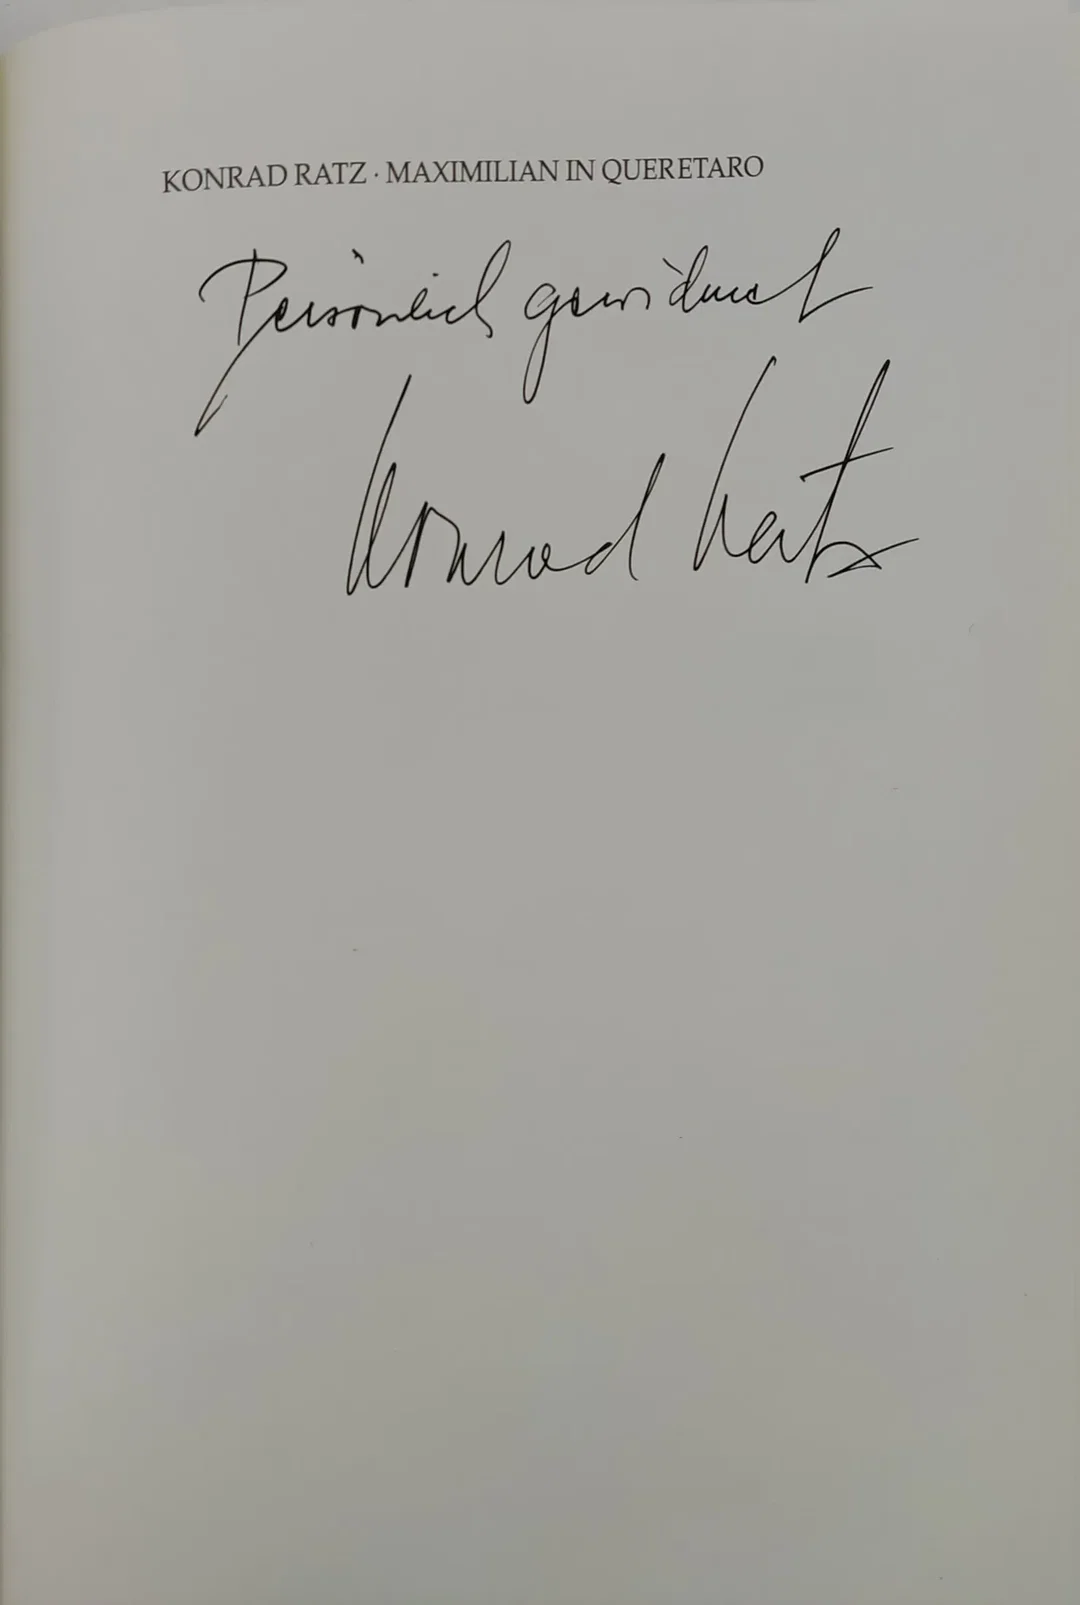 KONRAD RATZ · MAXIMILIAN IN QUERETARO
Persönlich gewidmet
Konrad Ratz